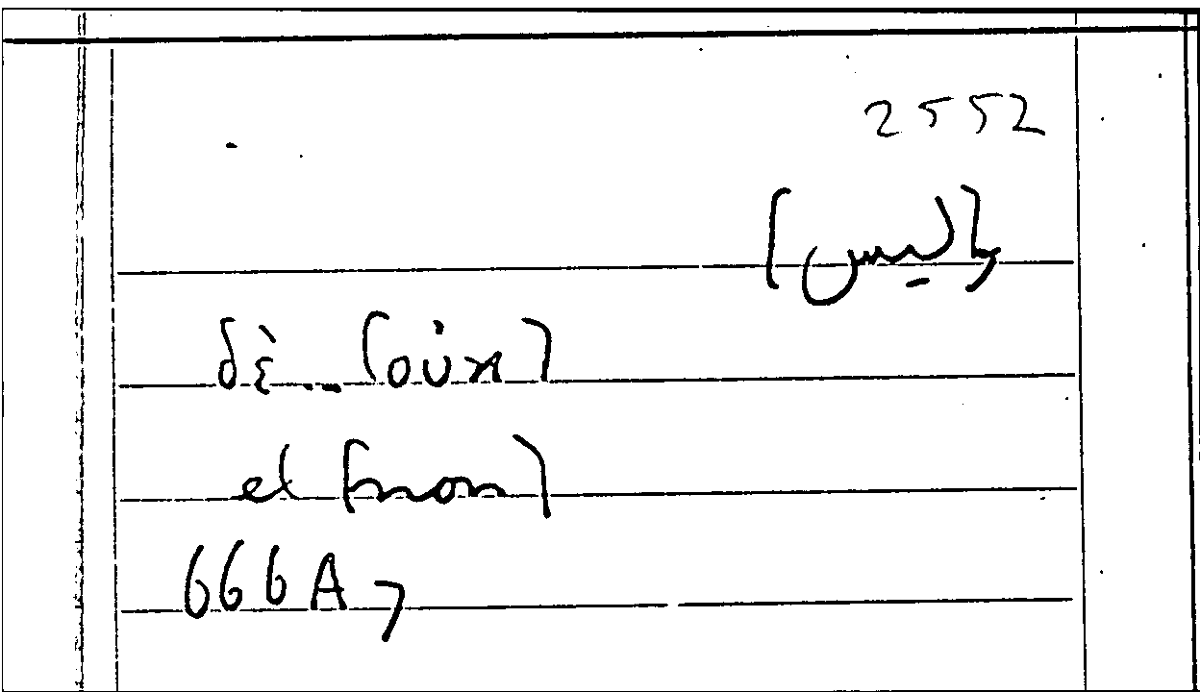 2552
و[ليس]
δὲ... [οὐχ]
et [non]
666A7